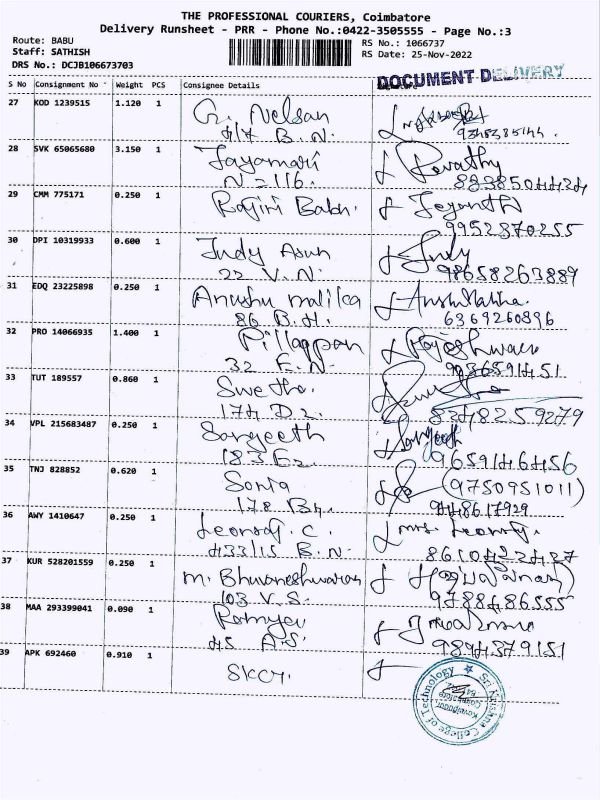 THE PROFESSIONAL COURIERS, Coimbatore
Delivery Runsheet - PRR - Phone No.:0422-3505555 - Page No.:3
Route: BABU
Staff: SATHISH
DRS No.: DCJB106673703
RS No.: 1066737
RS Date: 25-Nov-2022
DOCUMENT DELIVERY
S No Consignment No Weight PCS Consignee Details
27 KOD 1239515 1.120 1 G. Nelsan
4/7 B.N.
28 SVK 65065680 3.150 1 Jayamari Revathy
N=116. 8838504424
29 CMM 775171 0.250 1 Rajini Babu. Jeyanthi
9952370255
30 DPI 10319933 0.600 1 Judy Asun Judy
22 V.N. 98658263889
31 EDQ 23225898 0.250 1 Anushu malika
86 B.H. 6369260896
32 PRO 14066935 1.400 1 Pillappan Rajeshwari
32 E.N.
33 TUT 189557 0.860 1 Swetha.
174 D2. 8248259279
34 VPL 215683487 0.250 1 Sangeeth Sangeeth
183 E2 9659146456
35 TNJ 828852 0.620 1 Sonia (9750951011)
178 Bh. 9448617929
36 AWY 1410647 0.250 1 Leonard. C. mrs.
433/15 B.N. 8610422427
37 KUR 528201559 0.250 1 M. Bhuvaneshwaran
103 V.S. 9788486555
38 MAA 293399041 0.090 1 Ramya
45 A.S. 9894379151
39 APK 692460 0.910 1 SKCT.
Sri Krishna College of Technology
Kovaipudur
Coimbatore